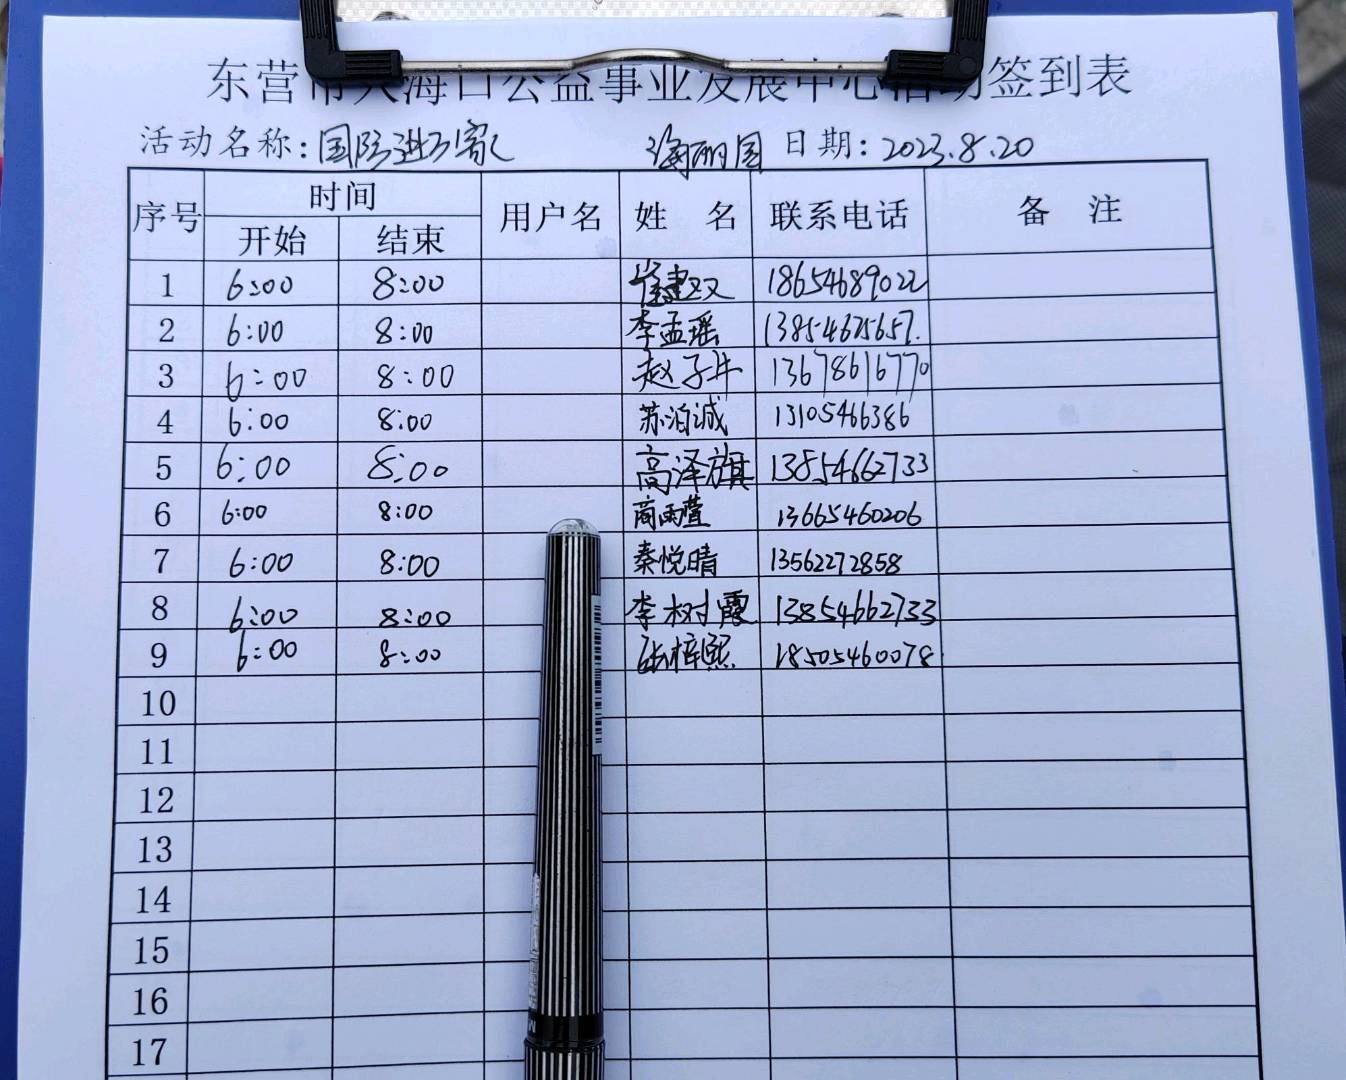 东营市大海口公益事业发展中心活动签到表
活动名称: 国际进万家 海丽园 日期: 2023.8.20
序号 时间 用户名 姓 名 联系电话 备 注
开始 结束
1 6:00 8:00 崔建双 18654689022
2 6:00 8:00 李孟瑶 13854625657.
3 6:00 8:00 赵子牛 13678616770
4 6:00 8:00 苏泊诚 13105466386
5 6:00 8:00 高泽旗 13854662733
6 6:00 8:00 商雨萱 13665460206
7 6:00 8:00 秦悦晴 13562272858
8 6:00 8:00 李树霞 13854662733
9 6:00 8:00 张梓熙 18505460078
10
11
12
13
14
15
16
17